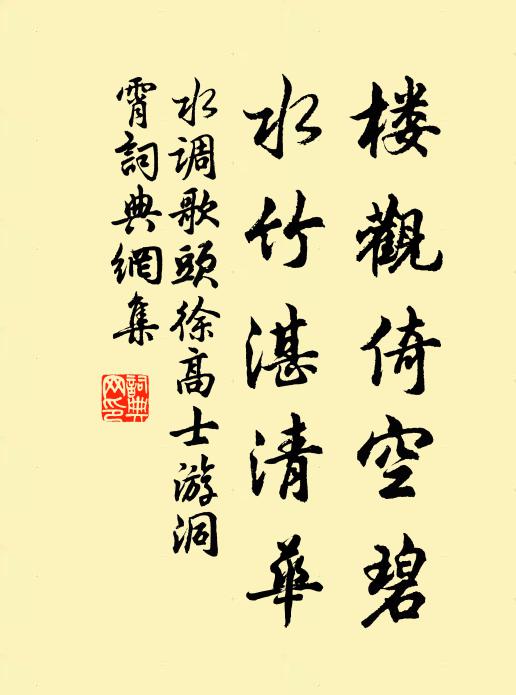 楼觀倚空碧
水竹湛清華
水调歌頭徐高士游洞
霄詞典網集
詞典网印